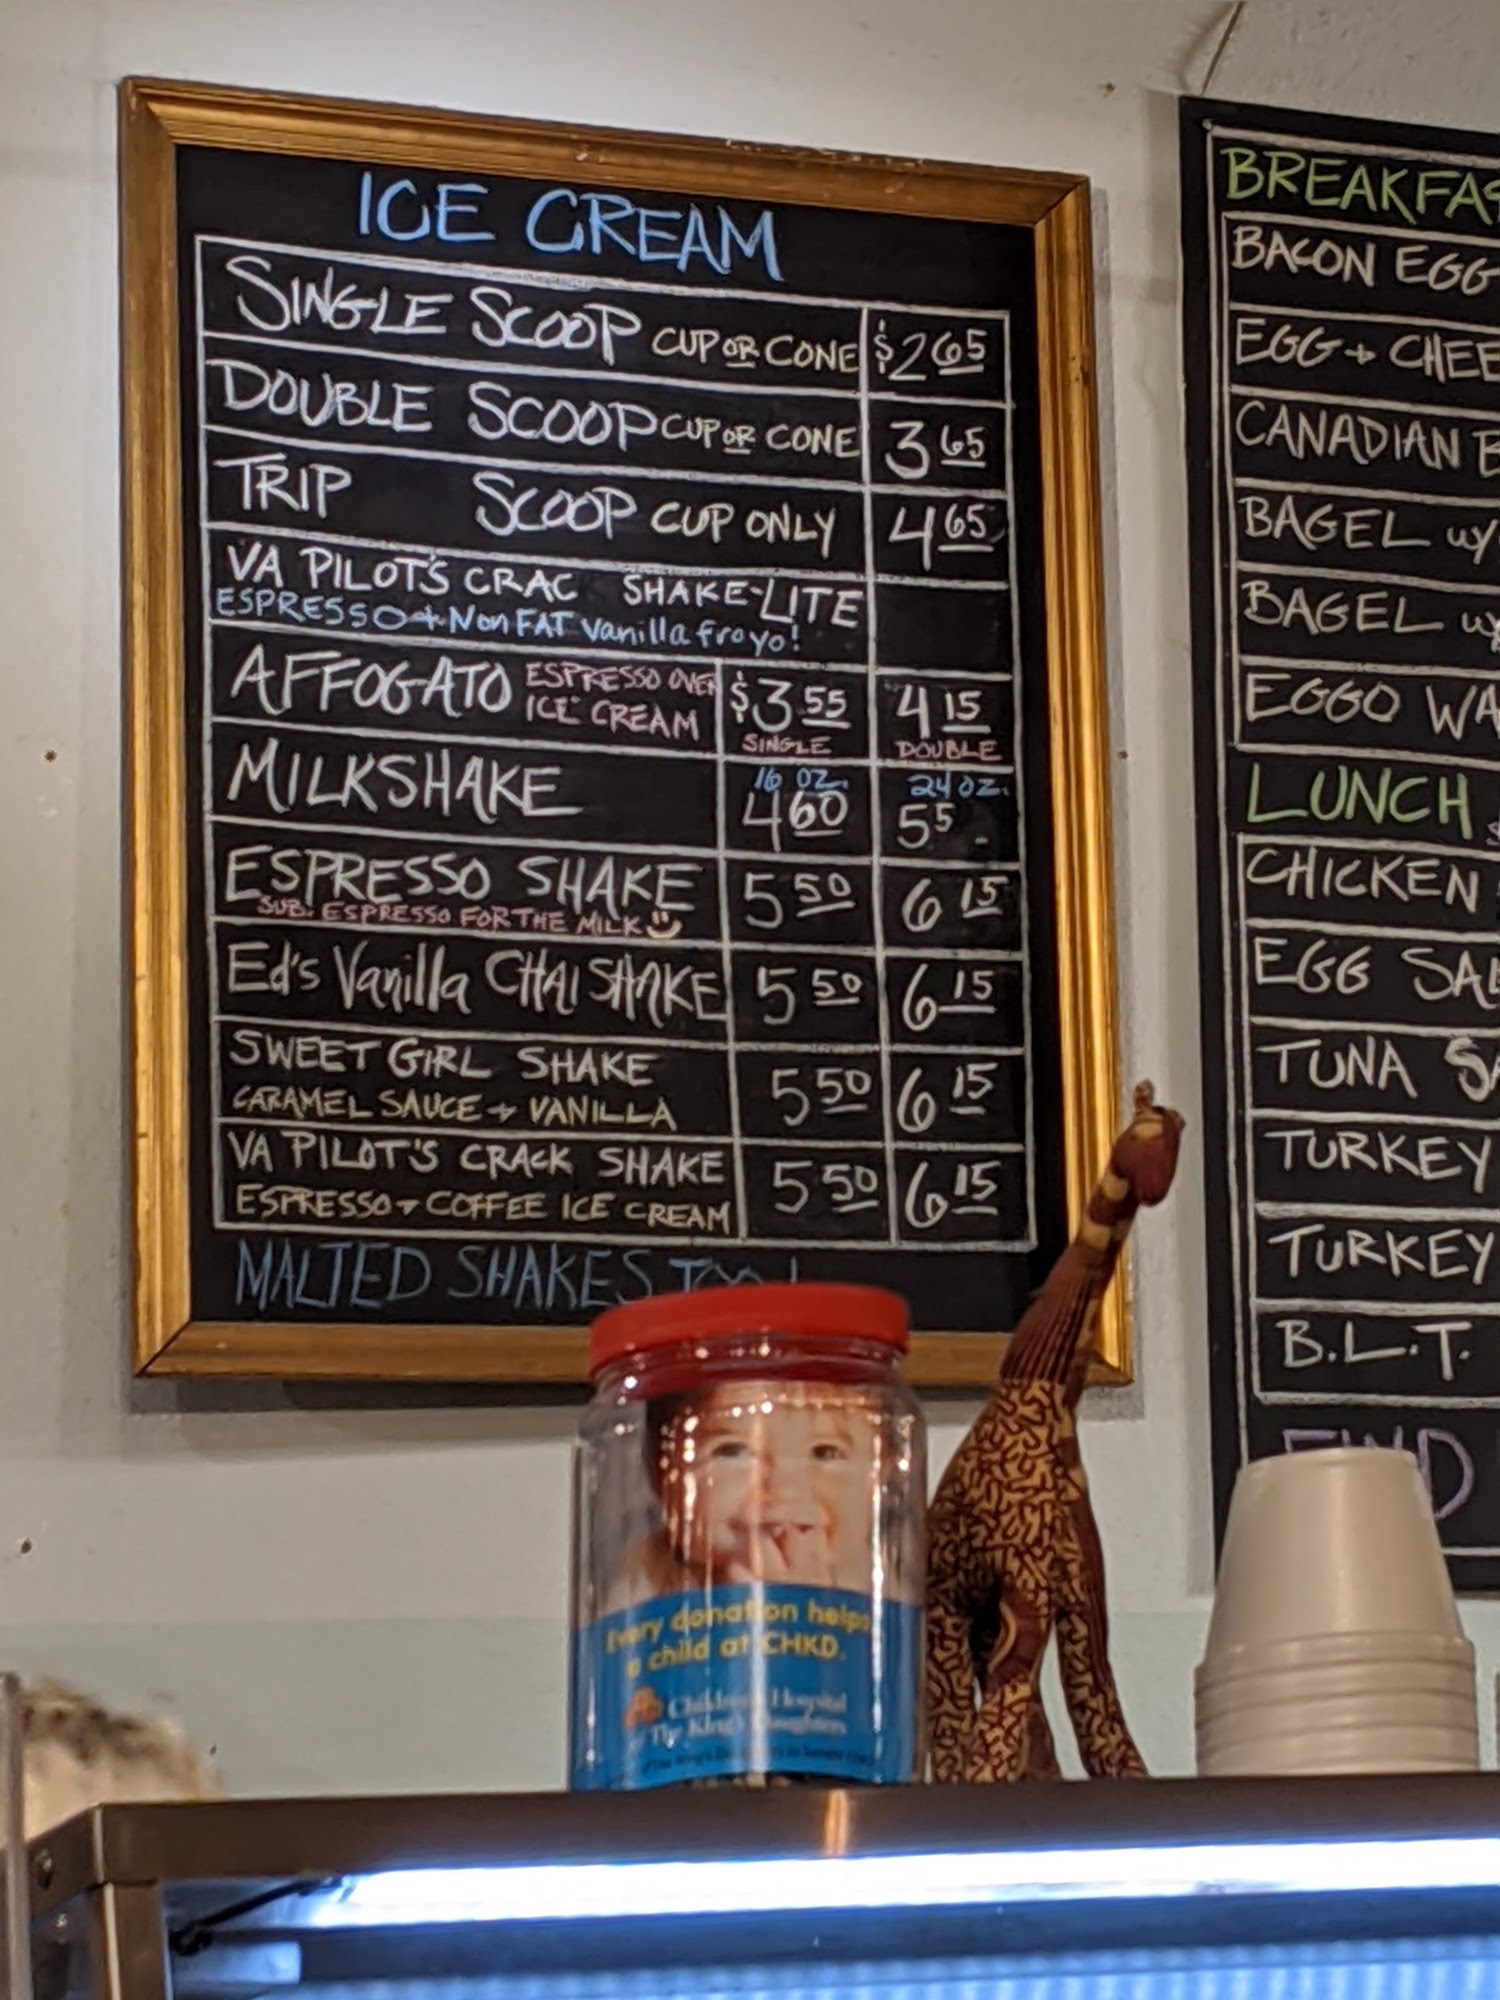 ICE CREAM
SINGLE SCOOP CUP OR CONE $2 65
DOUBLE SCOOP CUP OR CONE 3 65
TRIP SCOOP CUP ONLY 4 65
VA PILOT'S CRAC SHAKE-LITE
ESPRESSO + Non FAT Vanilla froyo!
AFFOGATO ESPRESSO OVER ICE CREAM $3.55 SINGLE 4 15 DOUBLE
16 OZ. 24 OZ.
MILKSHAKE 4 60 55
ESPRESSO SHAKE 5 50 6 15
SUB. ESPRESSO FOR THE MILK
Ed's Vanilla CHAI SHAKE 5 50 6 15
SWEET GIRL SHAKE 5 50 6 15
CARAMEL SAUCE + VANILLA
VA PILOT'S CRACK SHAKE 5 50 6 15
ESPRESSO + COFFEE ICE CREAM
MALTED SHAKES TOO!
BREAKFAS
BACON EGG
EGG + CHEE
CANADIAN B
BAGEL w/
BAGEL w/
EGGO WA
LUNCH
CHICKEN
EGG SAL
TUNA SA
TURKEY
TURKEY
B.L.T.
Every donation helps
a child at CHKD.
Children's Hospital
of The King's Daughters